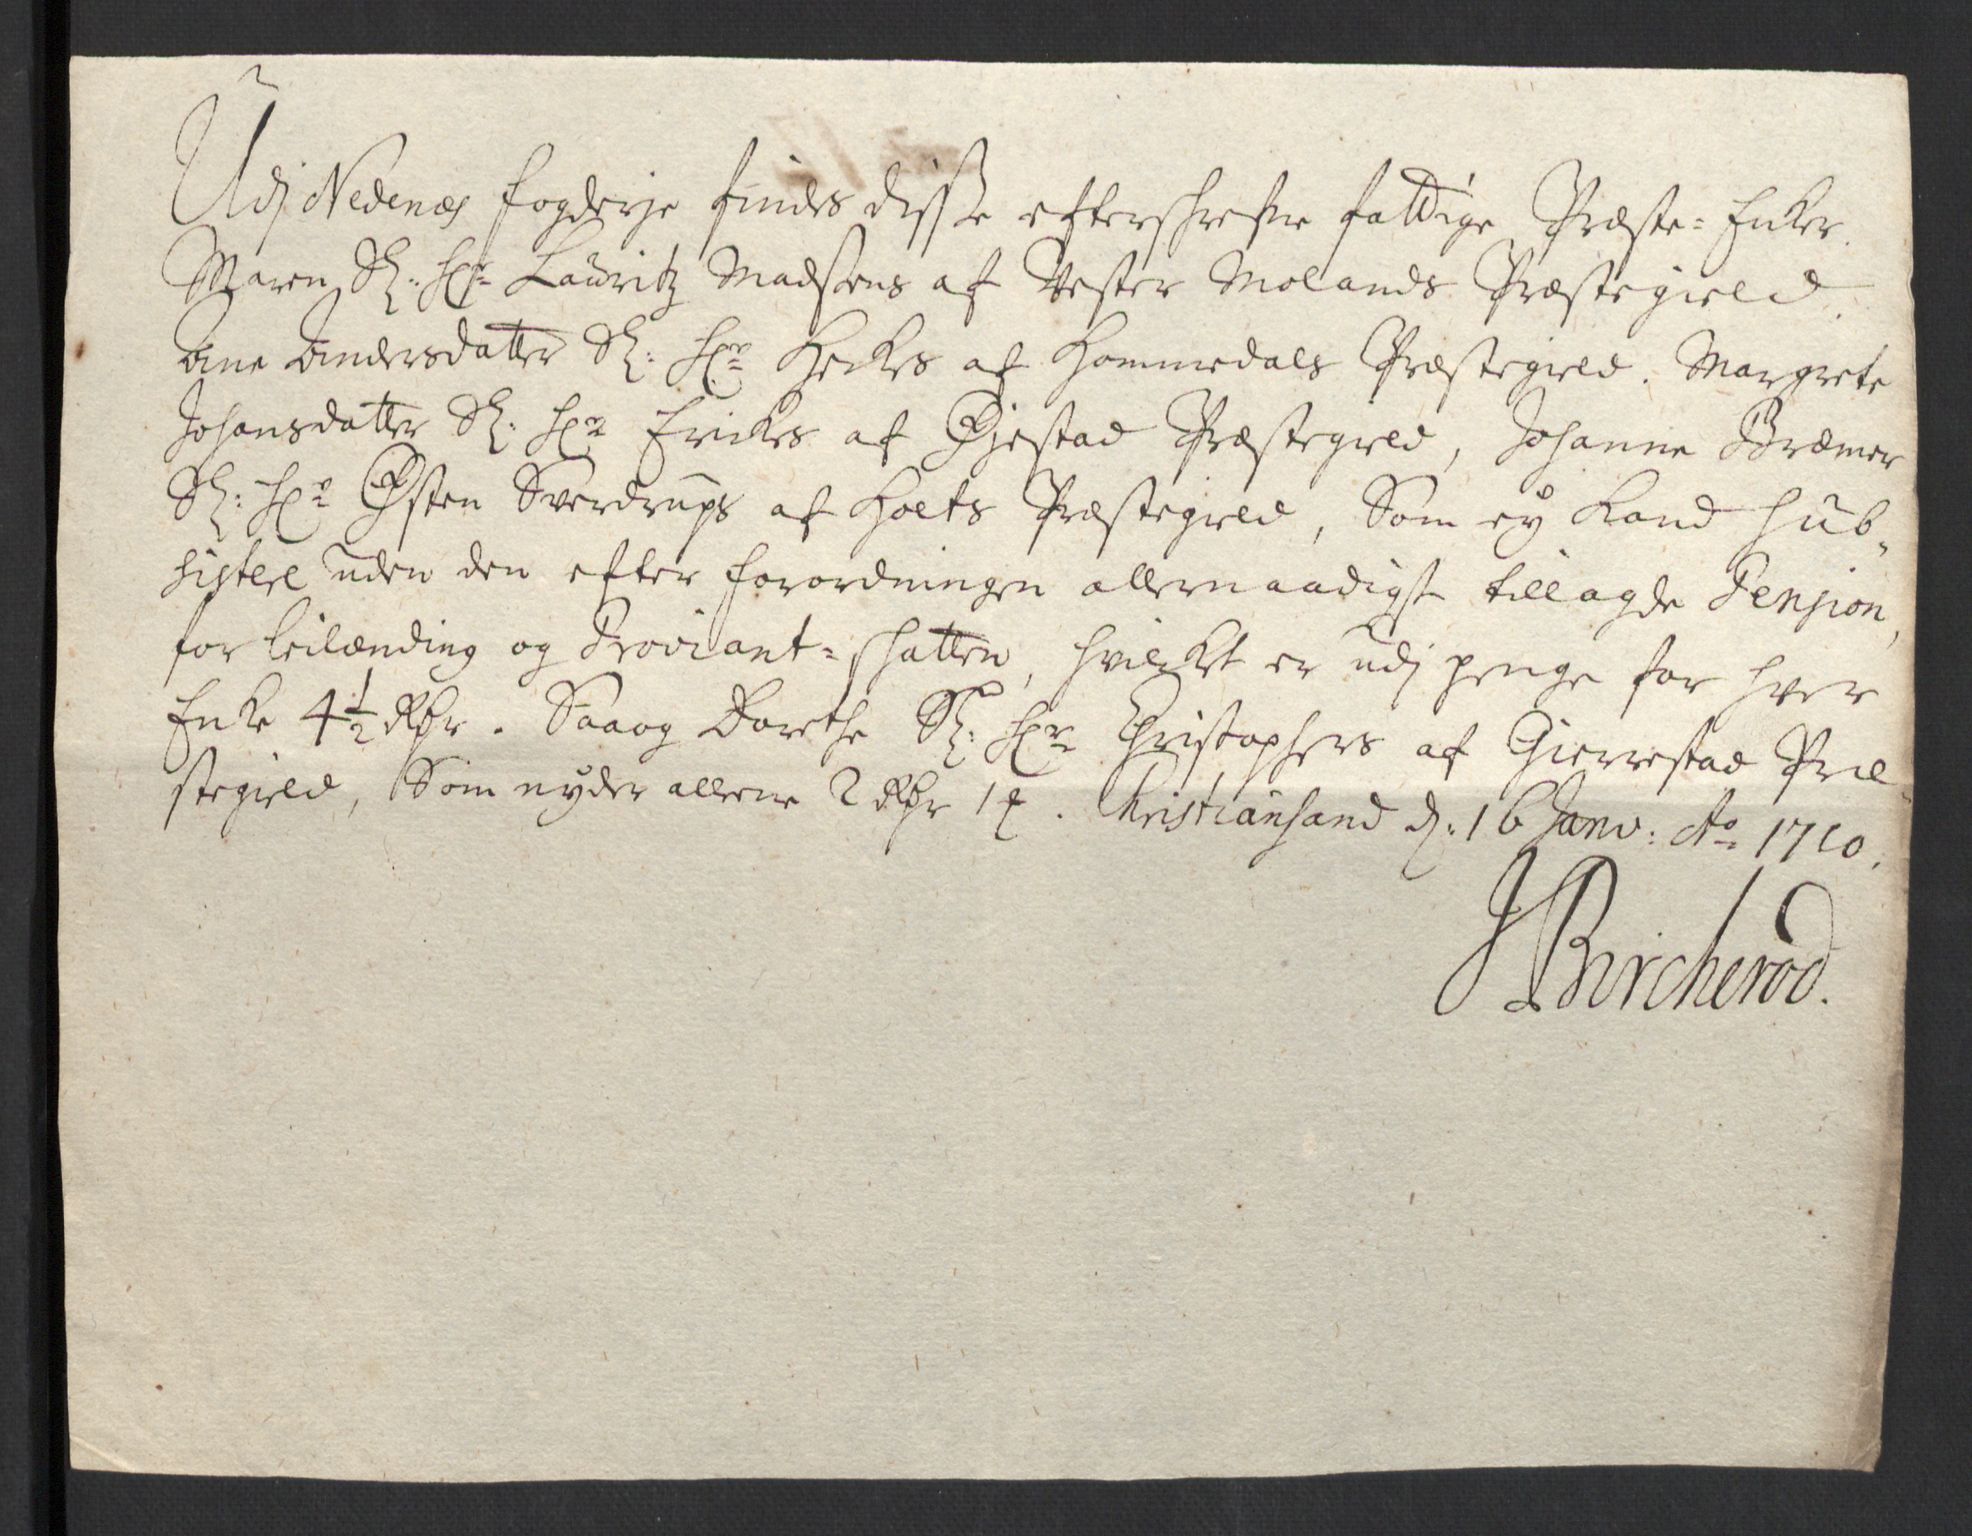 Udj Nedenæs fogderje findes disse efterschrefne fattige Præste-Enker.
Maren Sl: Hr: Lauritz Madsens af Vester Molands Præstegield.
Ane Andersdatter Sl: Hr: Heches af Hommedals Præstegield. Margrete
Johansdatter Sl: Hr: Erickes af Øjestad Præstegield, Johanne Bræmer
Sl: Hr: Østen Sverdrups af Holts Præstegield, Som ey kand sub-
sistere uden den efter forordningen allernaadigst tillagde Pension,
for leilænding og Proviant-skatten, hvilcket er udj penge for hver
Enke 4½ Rdr. Saaog Dorthe Sl: Hr: Christophers af Gierrestad Præ-
stegield, Som nyder allene 2 Rdr 1 ℔. Christiansand d: 16 Janv: Ao 1710.
J Bircherod.